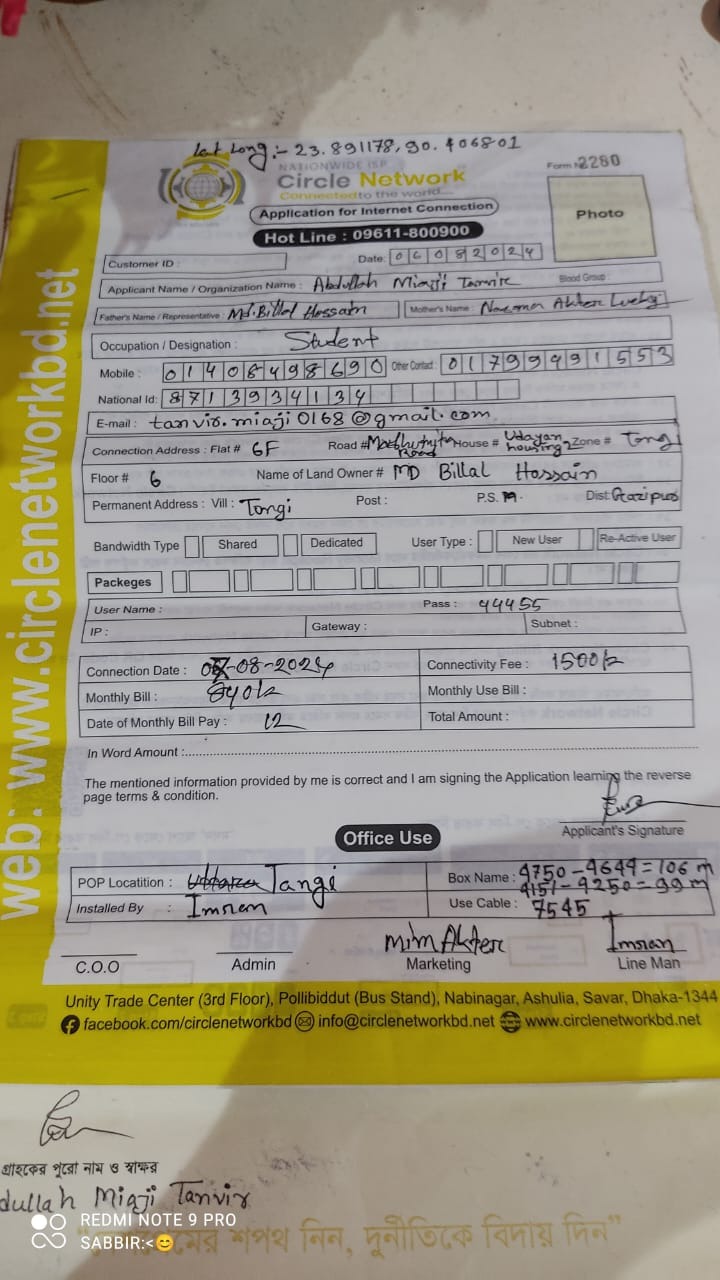 Lat Long:- 23.891178, 90.406801
NATIONWIDE ISP
Form № 2280
Circle Network
Connected to the world
Application for Internet Connection
Photo
Hot Line : 09611-800900
Customer ID :
Date: 06082024
Applicant Name / Organization Name : Abdullah Miaji Tanvir
Blood Group :
Father's Name / Representative : Md. Billal Hossain
Mother's Name : Akter
Occupation / Designation : Student
Mobile : 01406498690
Other Contact : 01799491553
National Id: 8713934134
E-mail : tanvir.miaji0168@gmail.com
Connection Address : Flat # 6F Road # Road House # Udayan housing Zone # Tongi
Floor # 6 Name of Land Owner # MD Billal Hossain
Permanent Address : Vill : Tongi Post : P.S. Dist: Gazipur
Bandwidth Type Shared Dedicated User Type : New User Re-Active User
Packeges
User Name : Pass : 44455
IP : Gateway : Subnet :
Connection Date : -08-2024 Connectivity Fee : 1500/-
Monthly Bill : Monthly Use Bill :
Date of Monthly Bill Pay : 12 Total Amount :
In Word Amount :
The mentioned information provided by me is correct and I am signing the Application learning the reverse
page terms & condition.
Applicant's Signature
Office Use
POP Locatition : Uttara Tangi
Box Name : 4750-4644=106 m
4151-4250=99 m
Installed By : Imran
Use Cable : 7545
Mim Akter
Imran
C.O.O Admin Marketing Line Man
Unity Trade Center (3rd Floor), Pollibiddut (Bus Stand), Nabinagar, Ashulia, Savar, Dhaka-1344
facebook.com/circlenetworkbd info@circlenetworkbd.net www.circlenetworkbd.net
web: www.circlenetworkbd.net
গ্রাহকের পুরো নাম ও স্বাক্ষর
dullah Miaji Tanvir
শপথ নিন, দুর্নীতিকে বিদায় দিন”
REDMI NOTE 9 PRO
SABBIR:<😊